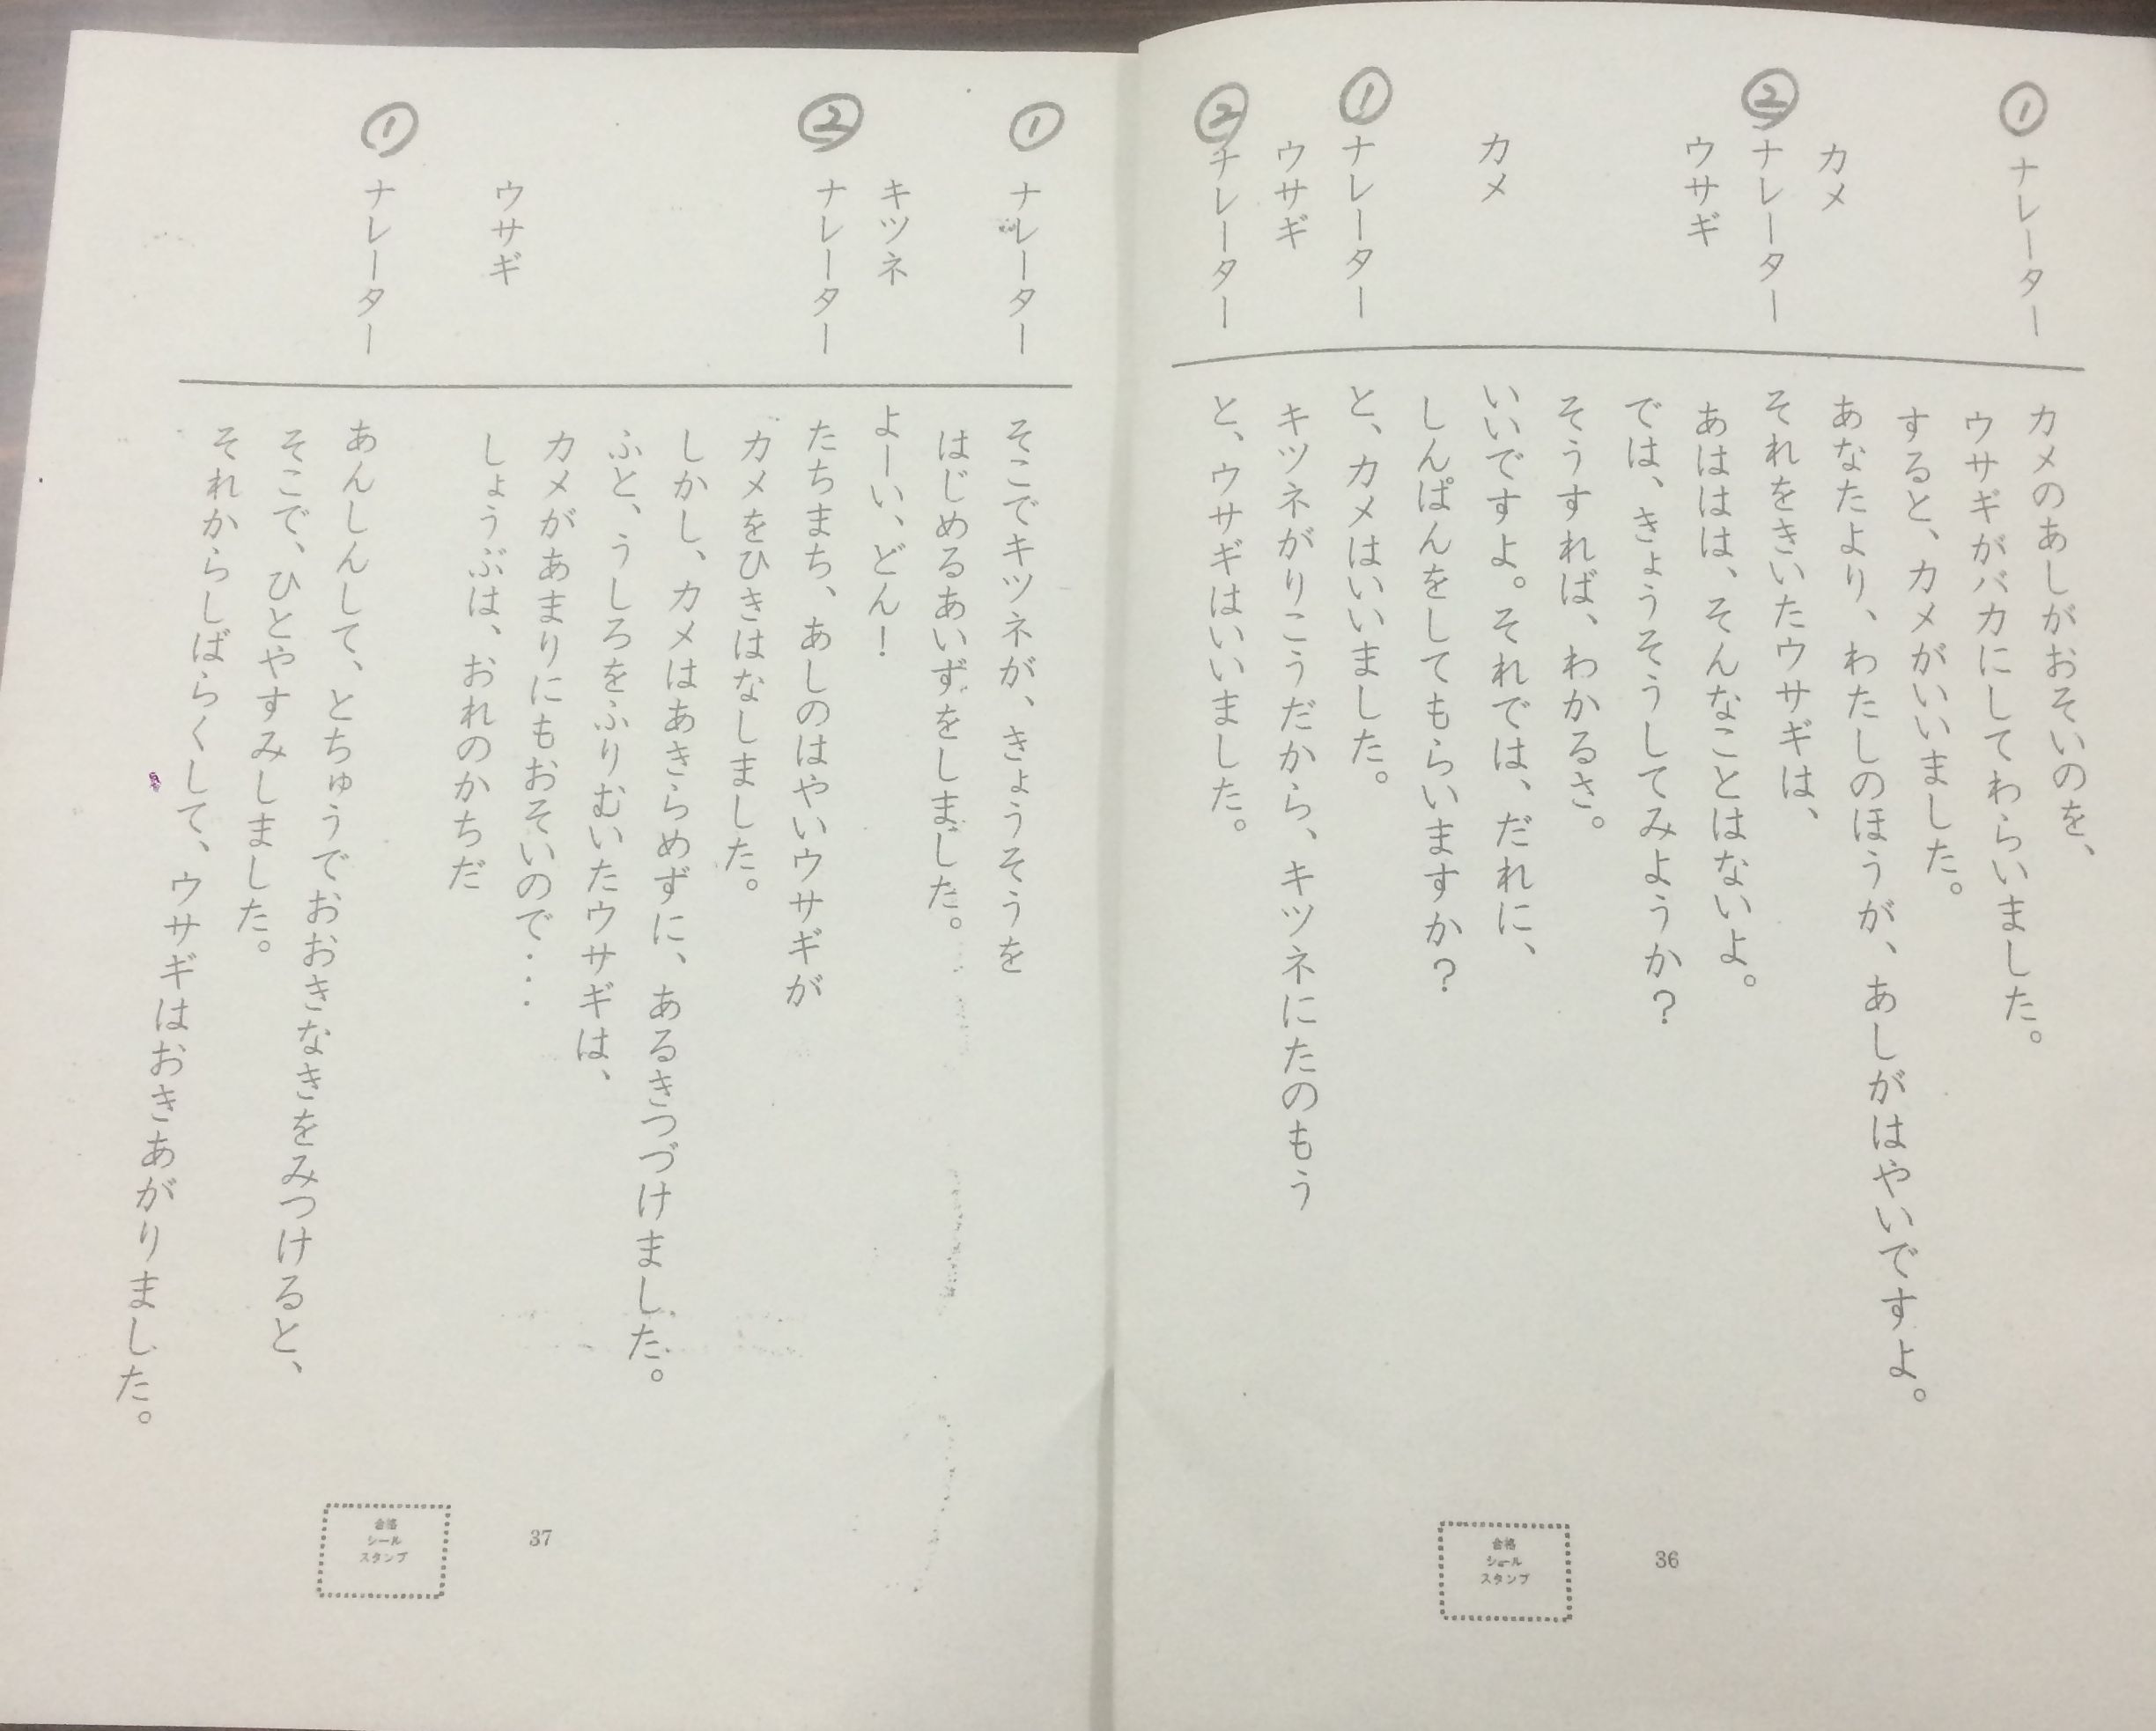 ① ナレーター カメのあしがおそいのを、
ウサギがバカにしてわらいました。
すると、カメがいいました。
カメ あなたより、わたしのほうが、あしがはやいですよ。
② ナレーター それをきいたウサギは、
ウサギ あははは、そんなことはないよ。
では、きょうそうしてみようか？
そうすれば、わかるさ。
カメ いいですよ。それでは、だれに、
しんぱんをしてもらいますか？
① ナレーター と、カメはいいました。
ウサギ キツネがりこうだから、キツネにたのもう
② ナレーター と、ウサギはいいました。
合格
シール
スタンプ
36
① ナレーター そこでキツネが、きょうそうを
はじめるあいずをしました。
キツネ よーい、どん！
② ナレーター たちまち、あしのはやいウサギが
カメをひきはなしました。
しかし、カメはあきらめずに、あるきつづけました。
ふと、うしろをふりむいたウサギは、
カメがあまりにもおそいので・・・
ウサギ しょうぶは、おれのかちだ
① ナレーター あんしんして、とちゅうでおおきなきをみつけると、
そこで、ひとやすみしました。
それからしばらくして、ウサギはおきあがりました。
合格
シール
スタンプ
37